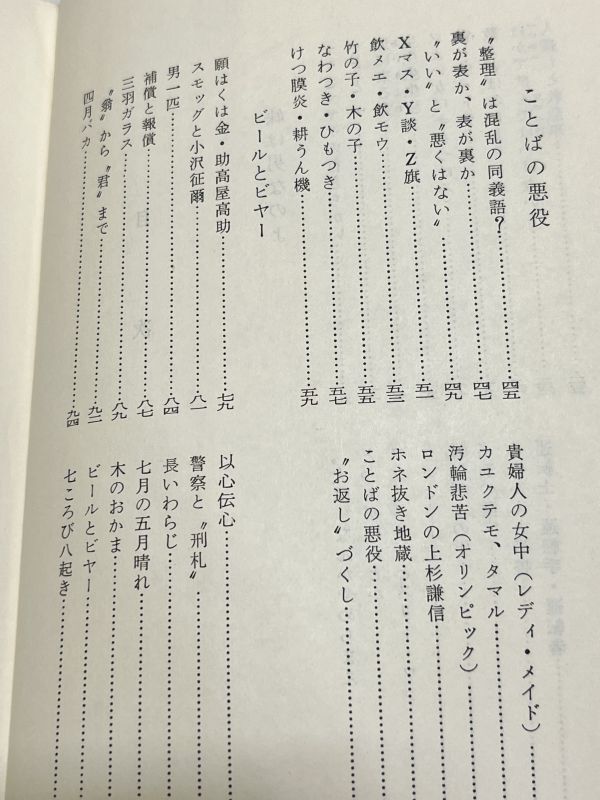 ことばの悪役
〝整理〟は混乱の同義語？……四五
裏が表か、表が裏か……四七
〝いい〟と〝悪くはない〟……四九
Xマス・Y談・Z旗……五一
飲メエ・飲モウ……五三
竹の子・木の子……五五
なわつき・ひもつき……五七
けつ膜炎・耕うん機……五九
貴婦人の女中（レディ・メイド）……
カユクテモ、タマル……
汚輪悲苦（オリンピック）……
ロンドンの上杉謙信……
ホネ抜き地蔵……
ことばの悪役……
〝お返し〟づくし……
ビールとビヤー
願はくは金・助高屋高助……七九
スモッグと小沢征爾……八一
男一匹……八四
補償と報償……八七
三羽ガラス……八九
〝翁〟から〝君〟まで……九二
四月バカ……九四
以心伝心……
警察と〝刑札〟……
長いわらじ……
七月の五月晴れ……
木のおかま……
ビールとビヤー……
七ころび八起き……